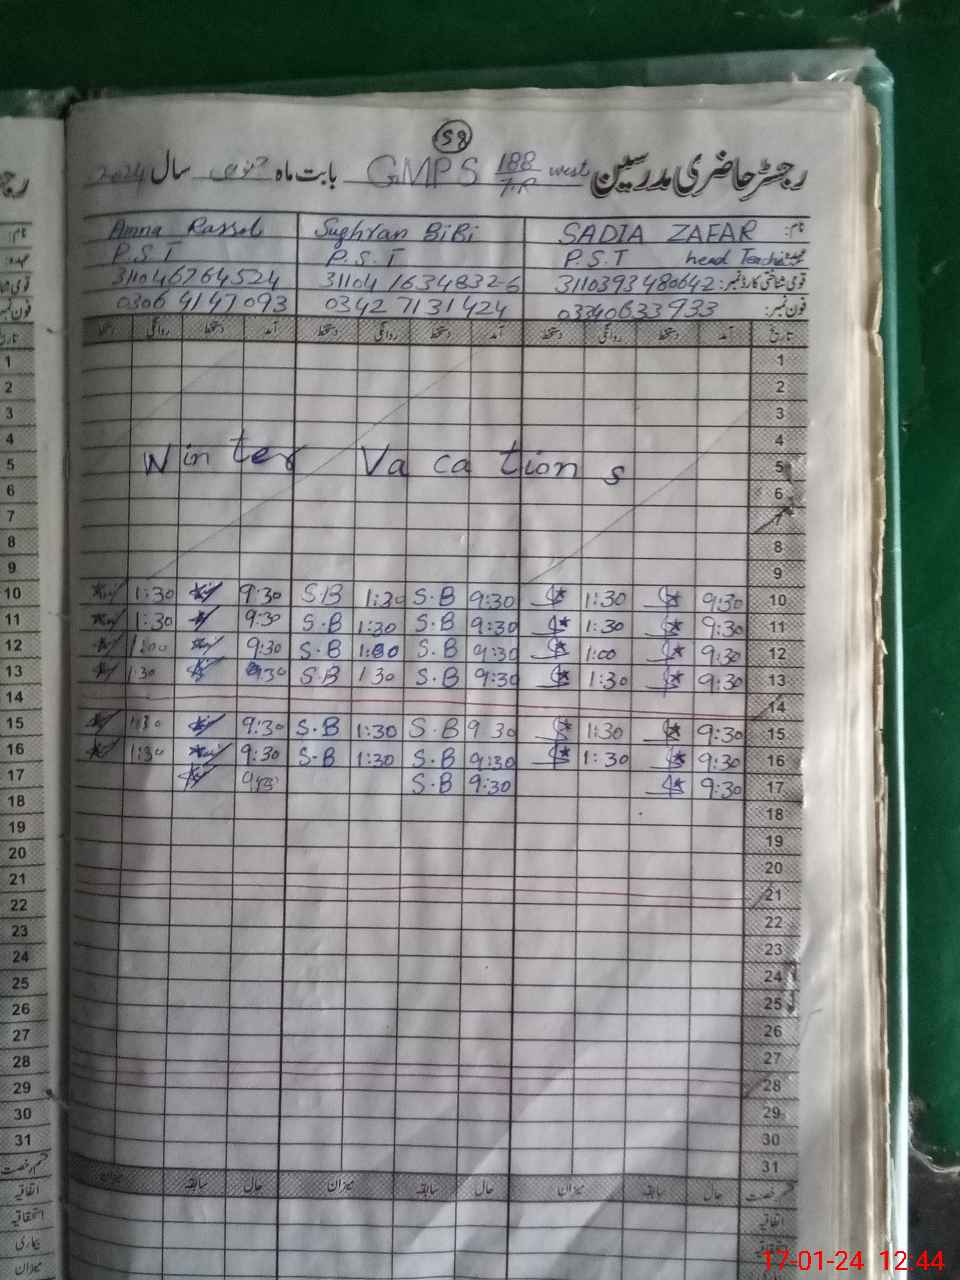 58
رجسٹر حاضری مدرسین GMPS 188/7.R west بابت ماہ جنوری سال 2024
نام: SADIA ZAFAR Sughran BiBi Amna Rasool
عہدہ: P.S.T head Teacher P.S.T P.S.T
قومی شناختی کارڈ نمبر: 3110393480642 31104 1634832-6 311046764524
فون نمبر: 03340633933 0342 7131424 0306 4147093
تاریخ آمد دستخط روانگی دستخط آمد دستخط روانگی دستخط آمد دستخط روانگی دستخط
1
2
3
4
5 Winter Vacations
6
7
8
9
10 9:30 1:30 9:30 S.B 1:30 S.B 9:30 1:30
11 9:30 1:30 9:30 S.B 1:30 S.B 9:30 1:30
12 9:30 1:00 9:30 S.B 1:00 S.B 9:30 1:00
13 9:30 1:30 9:30 S.B 1 30 S.B 9:30 1:30
14
15 9:30 1:30 9 30 S.B 1:30 S.B 9:30 1:30
16 9:30 1:30 9:30 S.B 1:30 S.B 9:30 1:30
17 9:30 9:30 S.B
18
19
20
21
22
23
24
25
26
27
28
29
30
31
قسم رخصت حال سابقہ میزان حال سابقہ میزان حال سابقہ میزان
اتفاقیہ
17-01-24 12:44